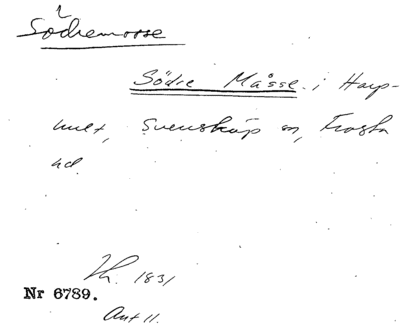 Södremosse
Södre Måsse i Harp-
hult, Svensköp sn, Frosta
hd.
Th. 1831
Nr 6789.
Ant 11.